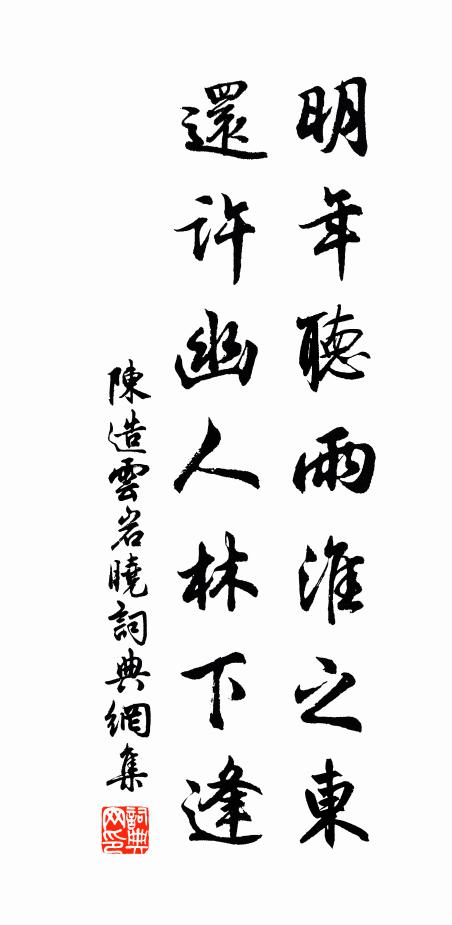 明年聽雨淮之東
還許幽人林下逢
陳造雲岩曉詞典網集
詞典网印